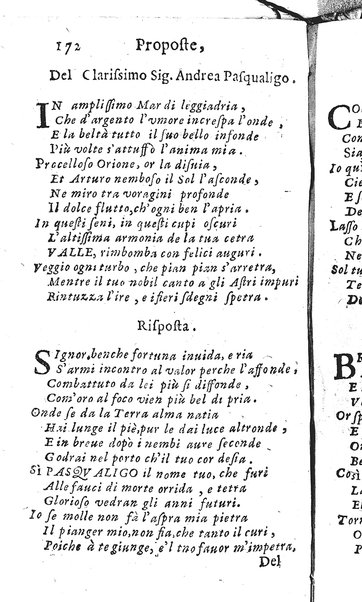 172 Propoſte,
Del Clariſſimo Sig. Andrea Paſqualigo.
IN ampliſſimo Mar di leggiadria,
Che d'argento l'vmore increſpa l'onde,
E la beltà tutto il ſuo bello infonde
Più volte s'attuffò l'anima mia.
Procelloſo Orione, or la diſuia,
Et Arturo nemboſo il Sol l'aſconde,
Ne miro tra voragini profonde
Il dolce flutto, ch'ogni ben l'apria.
In queſti ſeni, in queſti cupi oſcuri
L'altiſſima armonia de la tua cetra
VALLE, rimbomba con felici auguri.
Veggio ogni turbo, che pian pian s'arretra,
Mentre il tuo nobil canto a gli Aſtri impuri
Rintuzza l'ire, e i fieri ſdegni ſpetra.
Riſpoſta.
SIgnor, benche fortuna inuida, e ria
S'armi incontro al valor perche l'affonde,
Combattuto da lei più ſi diffonde,
Com'oro al foco vien più bel di pria.
Onde ſe da la Terra alma natia
Hai lunge il piè, pur le dai luce altronde,
E in breue dopò i nembi aure ſeconde
Godrai nel porto ch'il tuo cor deſia.
Sì PASQVALIGO il nome tuo, che furi
Alle fauci di morte orrida, e tetra
Glorioſo vedran gli anni futuri.
Io ſe molle non fà l'aſpra mia pietra
Il pianger mio, non fia, che tanto il curi,
Poiche à te giunge, e'l tuo fauor m'impetra.
Del